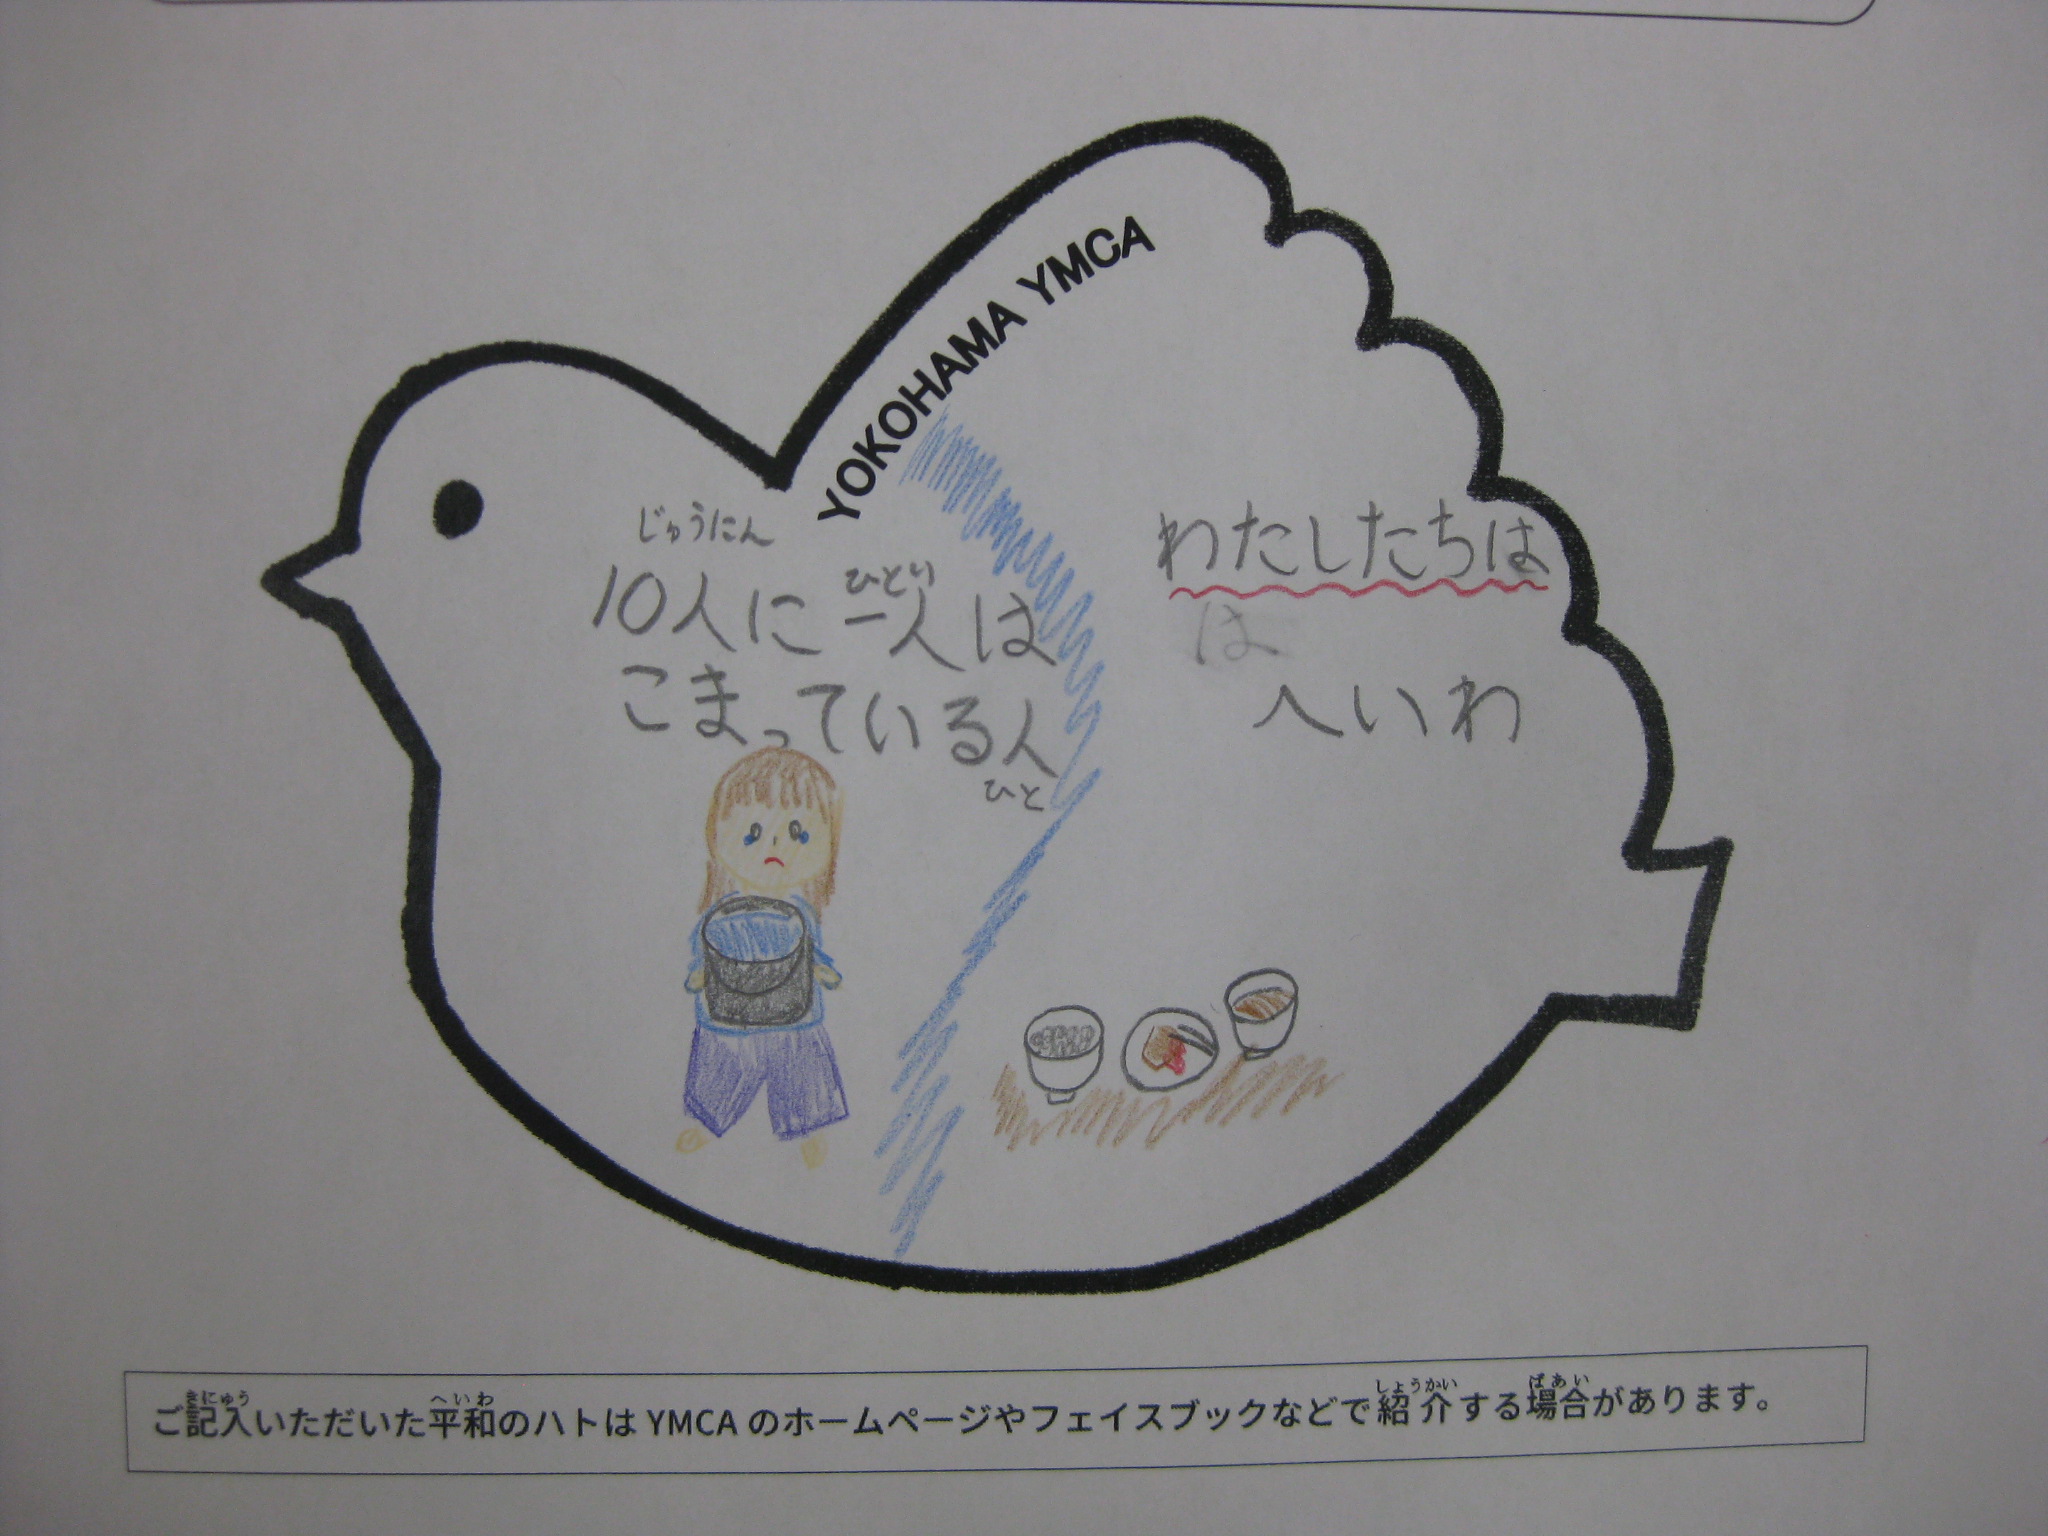 YOKOHAMA YMCA
じゅうにん
ひとり
10人に一人は
こまっている人
ひと
わたしたちは
は
へいわ
きにゅう へいわ しょうかい ばあい
ご記入いただいた平和のハトは YMCA のホームページやフェイスブックなどで紹介する場合があります。